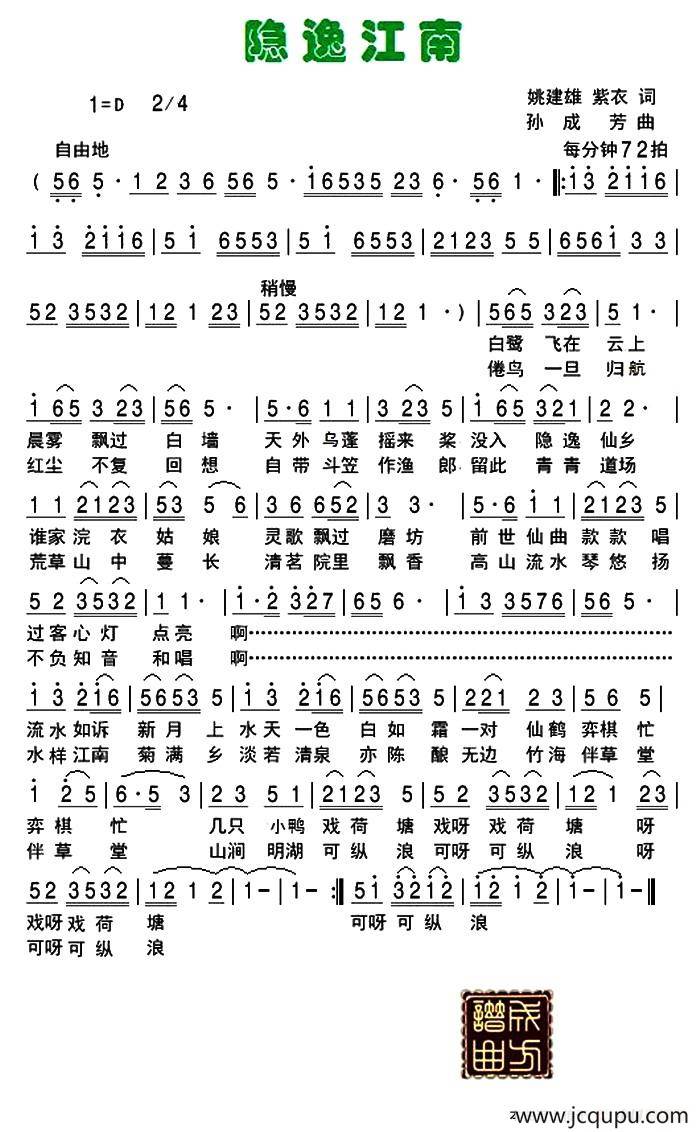 隐逸江南
1=D 2/4
姚建雄 紫衣 词
孙成芳 曲
自由地
每分钟72拍
( 56 5· 12 36 56 5· 16535 23 6· 56 1· ‖: 13 2116 |
13 2116 | 51 6553 | 51 6553 | 2123 55 | 6561 33 |
稍慢
52 3532 | 12 1 23 | 52 3532 | 12 1· ) | 565 323 | 5 1· |
白鹭 飞在 云上
倦鸟 一旦 归航
1 65 3 23 | 56 5· | 5·6 11 | 323 5· | 165 3321 | 2 2· |
晨雾 飘过 白墙 天外乌蓬 摇来桨 没入隐逸仙乡
红尘 不复 回想 自带斗笠 作渔郎 留此青青道场
11 2123 | 53 5 6 | 36 652 | 3 3· | 5·6 11 | 2321 5 |
谁家浣衣姑娘 灵歌飘过磨坊 前世仙曲款款唱
荒草山中蔓长 清茗院里飘香 高山流水琴悠扬
52 3532 | 1 1· | 1·2 327 | 65 6· | 13 3576 | 5 5· |
过客心灯点亮 啊
不负知音和唱 啊
13 216 | 565 3 5 | 13 216 | 5653 5 | 2 221 | 2 32 | 56 5 |
流水如诉 新月上 水天一色 白如霜 一对仙鹤弈棋忙
水样江南 菊满乡 淡若清泉 亦陈酿 无边竹海伴草堂
1 25 | 6·5 3 | 23 51 | 2123 5 | 52 3532 | 12 1 23 |
弈棋忙 几只小鸭戏荷塘 戏呀戏荷塘 呀
伴草堂 山涧明湖可纵浪 可呀可纵浪 呀
52 3532 | 12 12 | 1- | 1- :‖ 51 3212 | 12 12 | 1- | 1- ‖
戏呀戏荷塘 可呀可纵浪
可呀可纵浪
成方谱曲
www.jcqupu.com